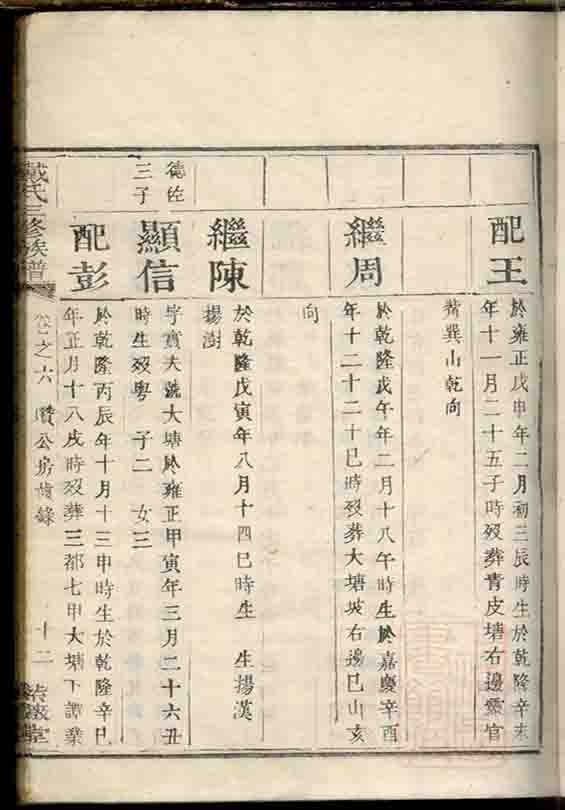 配王
於雍正戊申年二月初三辰時生於乾隆辛未
年十一月二十五子時歿葬青皮塘右邊靈官
背巽山乾向
繼周
於乾隆戊午年二月十八午時生於嘉慶辛酉
年十二十二十巳時歿葬大塘坡右邊巳山亥
向
繼陳
於乾隆戊寅年八月十四巳時生 生揚漢
揚澍
德佐
三子
顯信
字實夫號大塘於雍正甲寅年三月二十六丑
時生歿粵 子二 女三
配彭
於乾隆丙辰年十月十三申時生於乾隆辛巳
年正月十八戌時歿葬三都七甲大塘下譚業
戴氏三修族譜
卷之六 公房齒錄
十二
堂